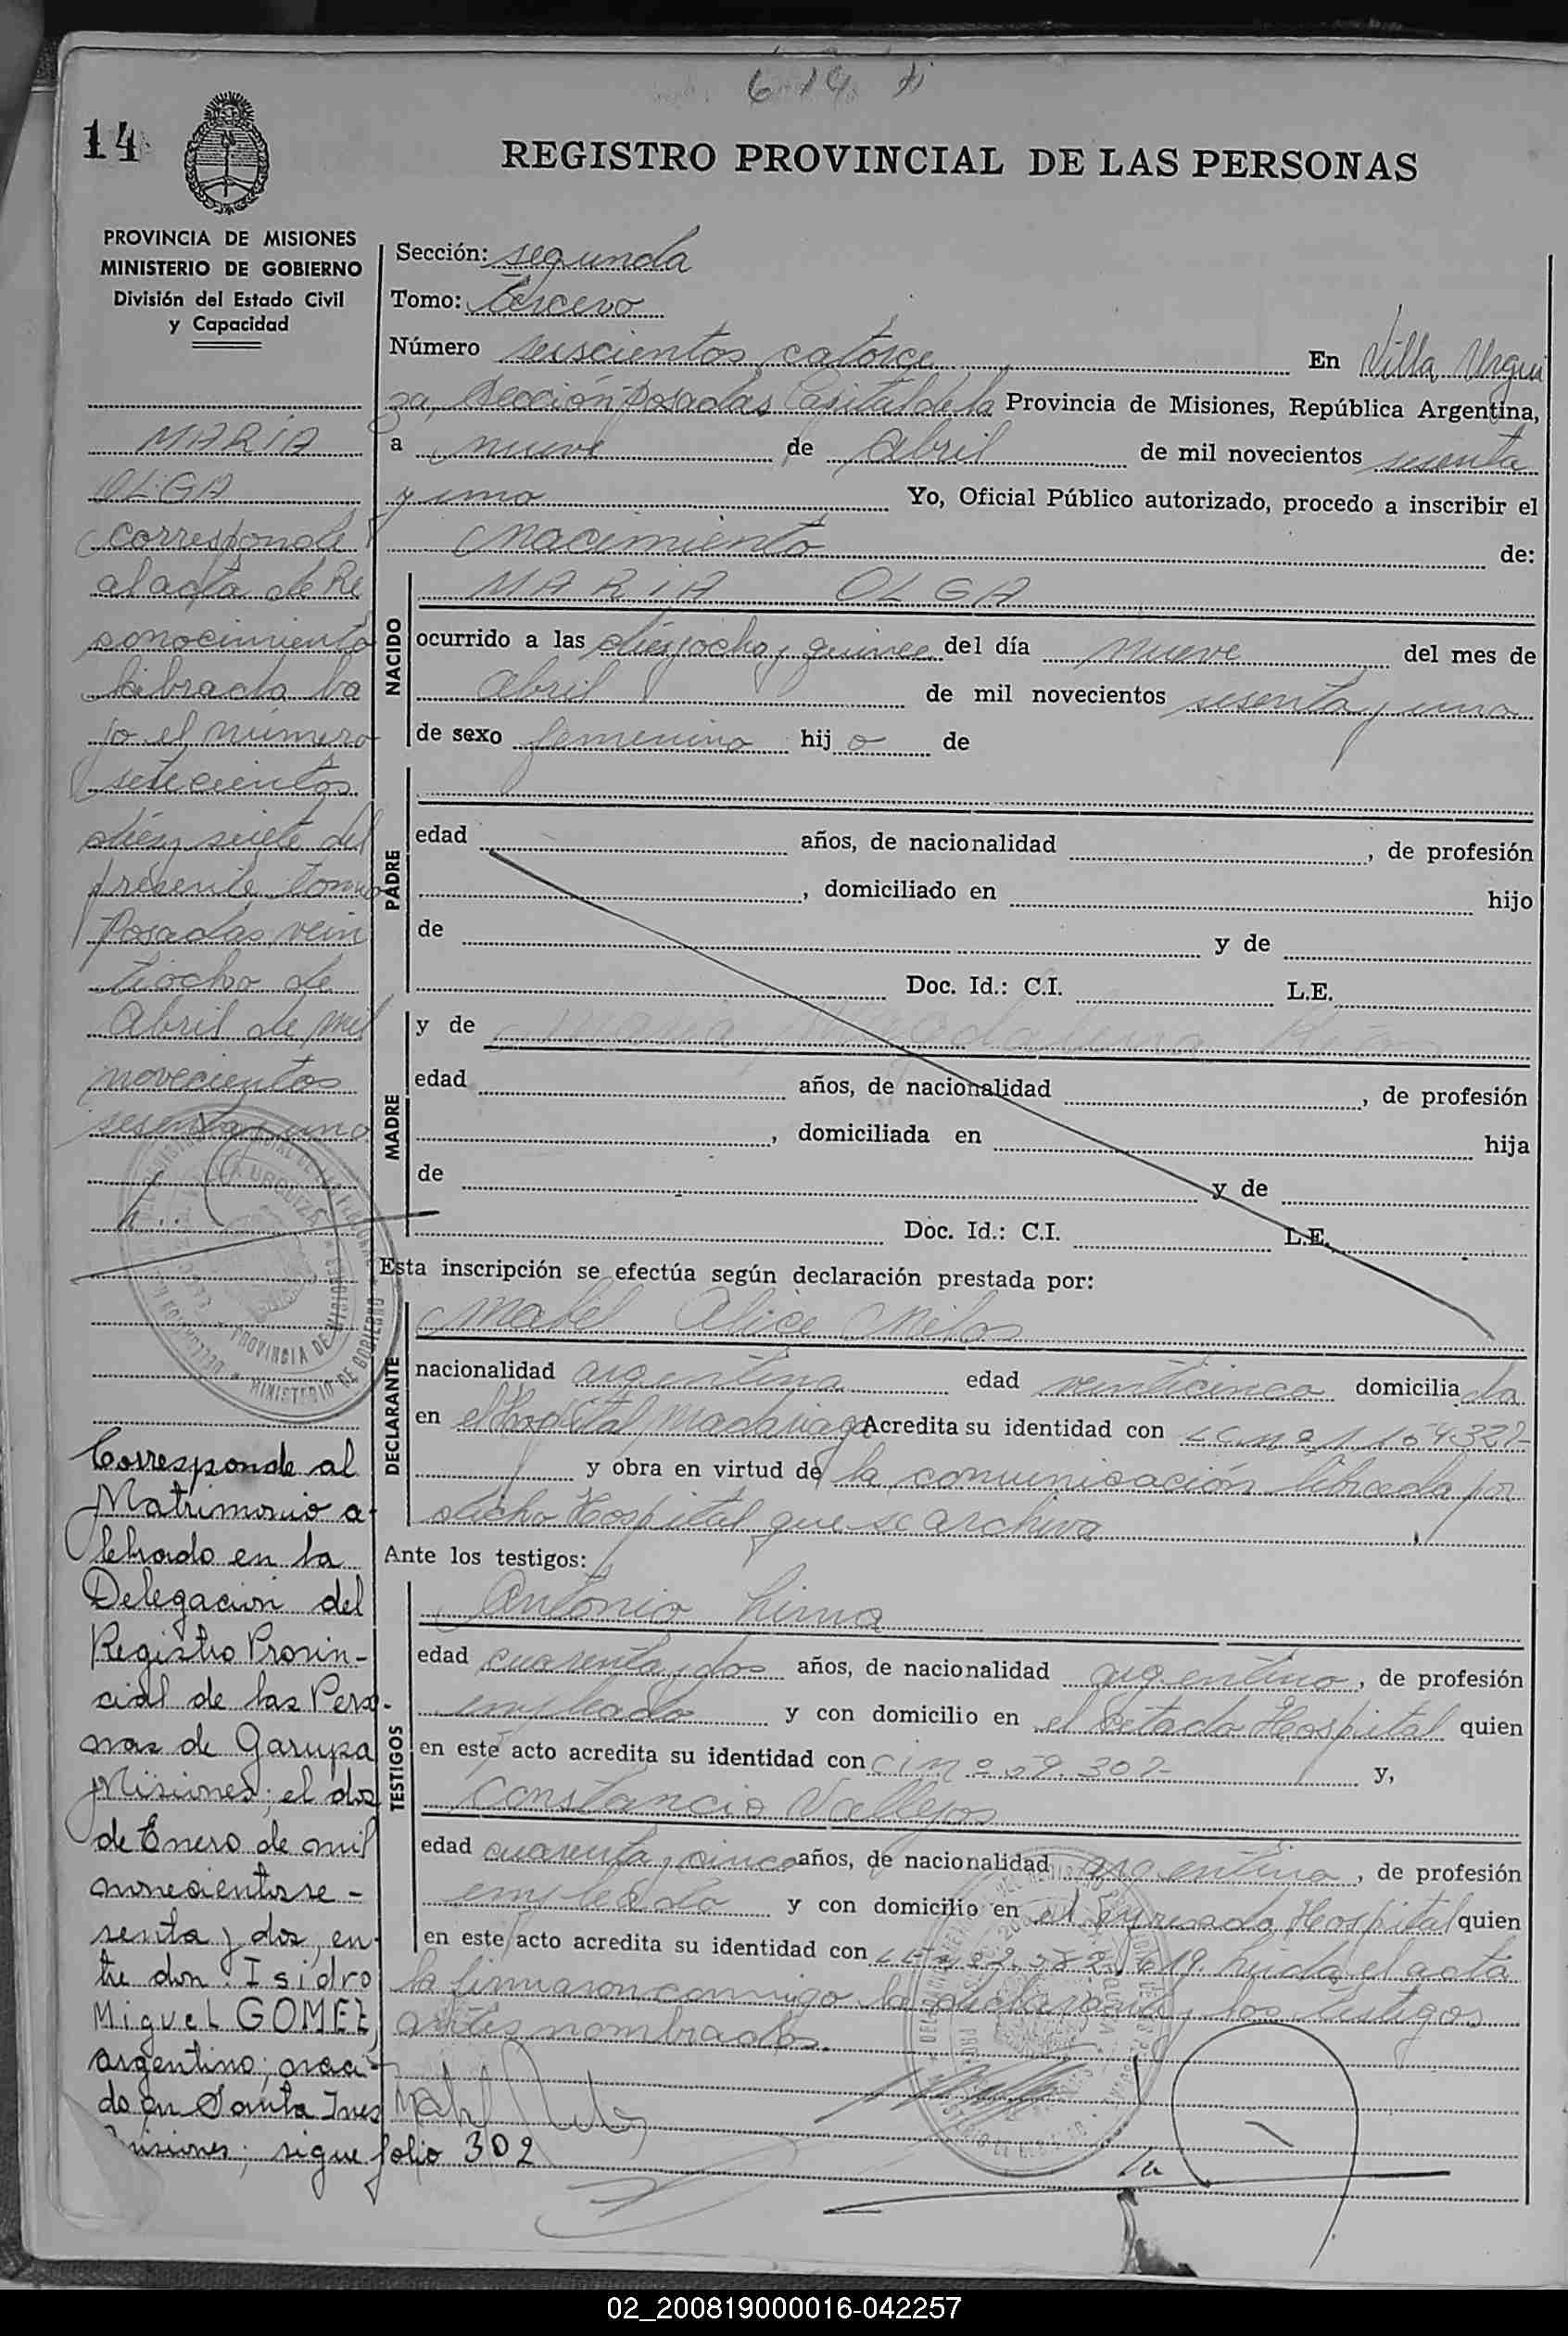 614
14
REGISTRO PROVINCIAL DE LAS PERSONAS
PROVINCIA DE MISIONES
MINISTERIO DE GOBIERNO
División del Estado Civil
y Capacidad
MARIA
OLGA
corresponde
al acta de Re
conocimiento
librada ba
jo el número
setecientos
diez y siete del
presente tomo
Posadas, vein
tiocho de
Abril de mil
novecientos
sesenta y uno
Corresponde al
Matrimonio ce
lebrado en la
Delegación del
Registro Provin-
cial de las Perso-
nas de Garupa
Misiones; el dos
de Enero de mil
novecientos se-
senta y dos, en-
tre don Isidro
Miguel GOMEZ,
argentino; naci-
do en Santa Ines
Misiones; sigue folio 302
Sección: segunda
Tomo: tercero
Número seiscientos catorce En Villa Urqui
za, Sección Posadas Capital de la Provincia de Misiones, República Argentina,
a nueve de Abril de mil novecientos sesenta
y uno Yo, Oficial Público autorizado, procedo a inscribir el
nacimiento de:
NACIDO
MARIA OLGA
ocurrido a las diez y ocho y quince del día nueve del mes de
abril de mil novecientos sesenta y uno
de sexo femenino hij o de
PADRE
edad años, de nacionalidad , de profesión
, domiciliado en hijo
de y de
Doc. Id.: C.I. L.E.
MADRE
y de Maria Magdalena
edad años, de nacionalidad , de profesión
, domiciliada en hija
de y de
Doc. Id.: C.I. L.E.
Esta inscripción se efectúa según declaración prestada por:
DECLARANTE
Mabel Alice Melos
nacionalidad argentina edad venticinco domicilia da
en el Hospital Madariaga Acredita su identidad con
y obra en virtud de la comunicación librada por
dicho Hospital que se archiva
Ante los testigos:
TESTIGOS
Antonio Lima
edad cuarenta y dos años, de nacionalidad argentino, de profesión
empleado y con domicilio en el citado Hospital quien
en este acto acredita su identidad con ci nº 59.302 y,
Constancio Vallejos
edad cuarenta y cinco años, de nacionalidad argentino, de profesión
empleado y con domicilio en el expresado Hospital quien
en este acto acredita su identidad con leida el acta
la firmaron conmigo la declarante y los testigos
antes nombrados.
02_200819000016-042257